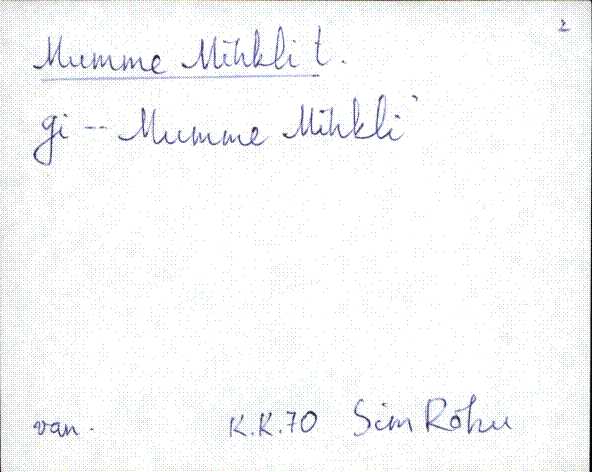 2
Mumme Mihkli t.
gi -- Mumme Mihkli`
van. K.K.70 Sim Rõhu